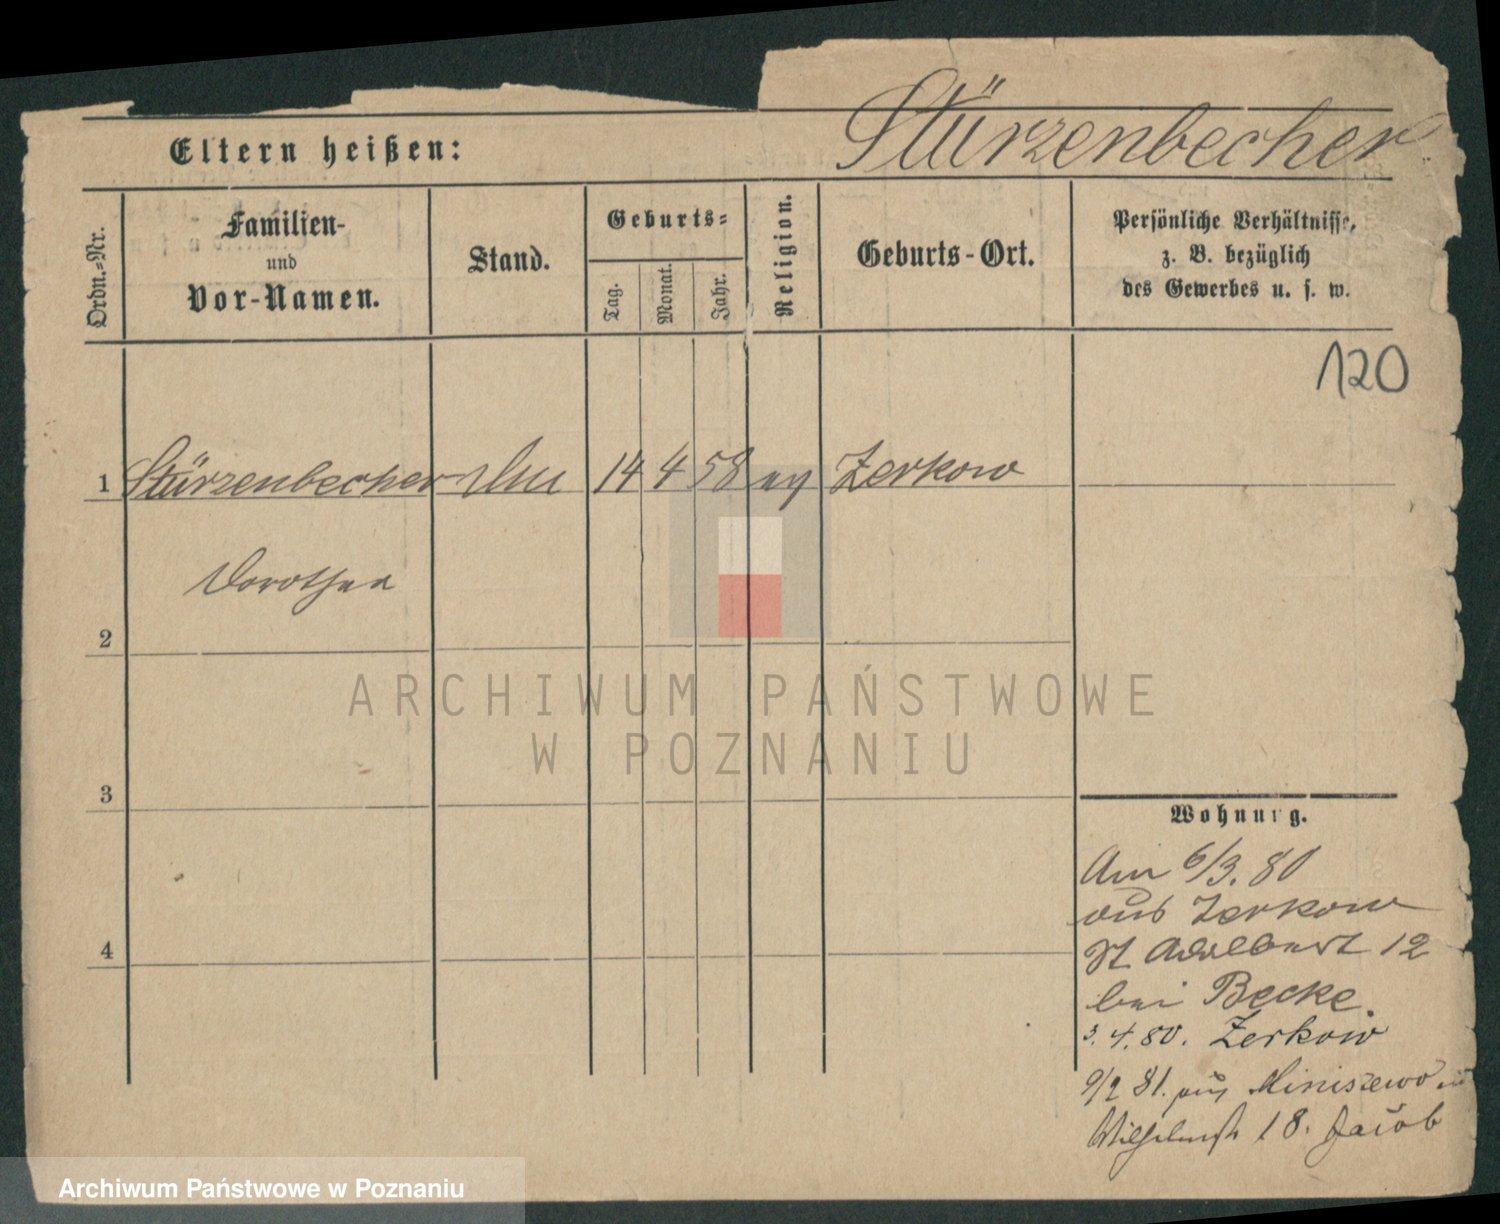 Stürzenbecher
Eltern heißen:
Ordn.-Nr.
Familien-
und
Vor-Namen.
Stand.
Geburts-
Tag.
Monat.
Jahr.
Religion.
Geburts-Ort.
Persönliche Verhältnisse,
z. B. bezüglich
des Gewerbes u. s. w.
120
1 Stürzenbecher 14 4 58 Zerkow
Dorothea
2
3
4
Wohnung.
Am 6/3. 80
aus Zerkow
St Adalbert 12
bei Becke.
3. 4. 80. Zerkow
9/2 81. aus Miniszewo
Wilhelmstr 18. Jacob
ARCHIWUM PAŃSTWOWE
W POZNANIU
Archiwum Państwowe w Poznaniu